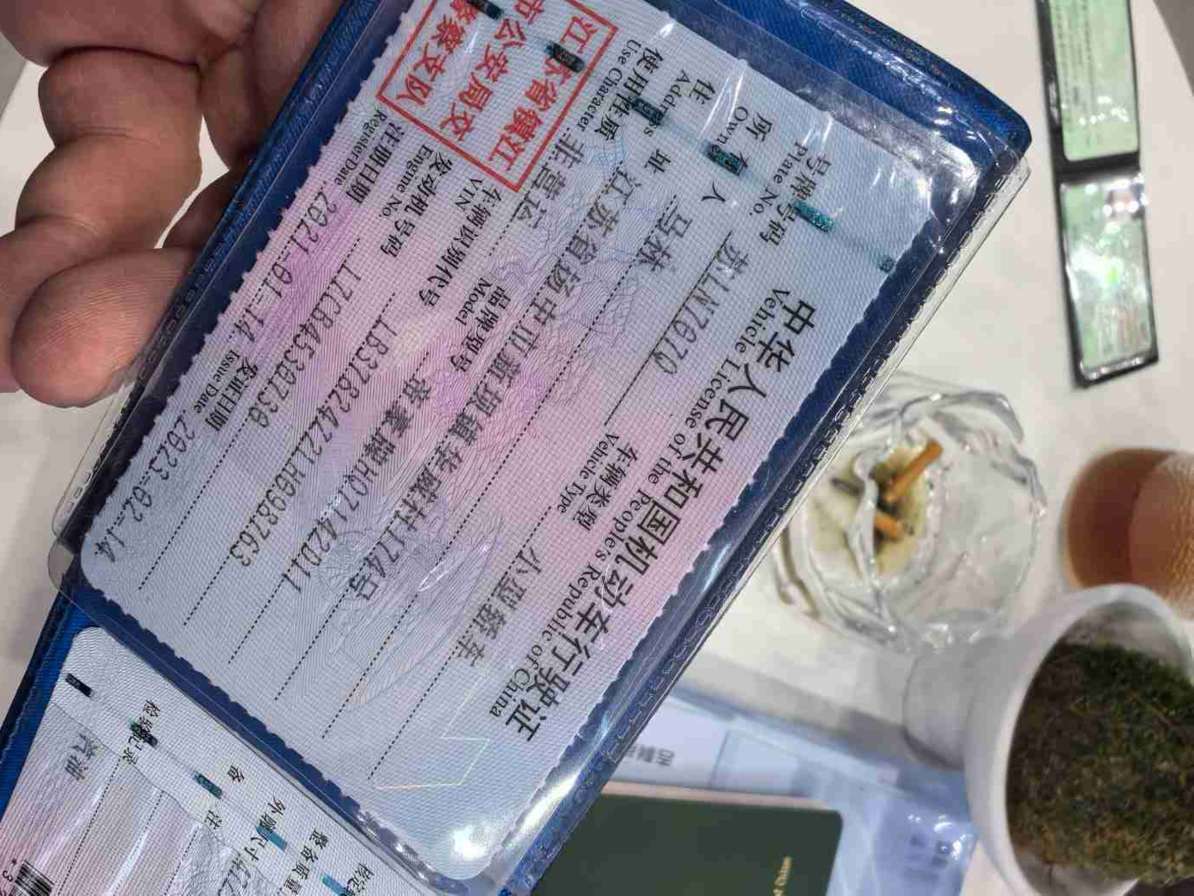 中华人民共和国机动车行驶证
Vehicle License of the People's Republic of China
号牌号码
Plate No.
苏LN767Q
车辆类型
Vehicle Type
小型轿车
所有人
Owner
马林
住址
Address
江苏省扬中市新坝镇华威村174号
使用性质
Use Character
非营运
品牌型号
Model
帝豪牌HQ7142D11
车辆识别代号
VIN
发动机号码
Engine No.
注册日期
Register Date
2021-01-14
发证日期
Issue Date
2023-02-14
江苏省镇江
市公安局交
警察支队
检验记录
汽油
备
注
外廓尺寸
整备质量